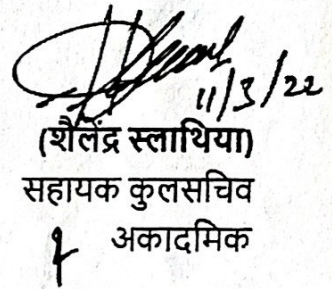 11/3/22
(शैलेंद्र स्लाथिया)
सहायक कुलसचिव
अकादमिक